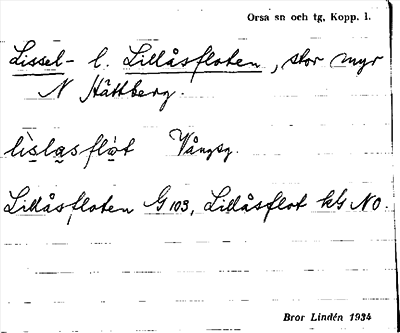 Orsa sn och tg, Kopp. l.
Lissel- l. Lillåsfloten, stor myr
N Hättberg.
lislasflöt Vångsg.
Lillåsfloten G 103, Lillåsflot kG NO.
Bror Lindén 1934